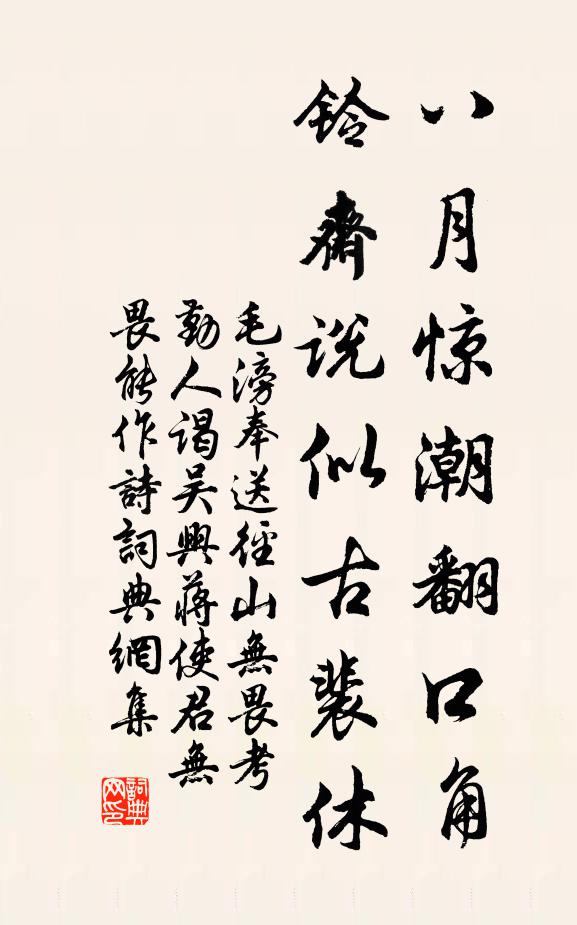 八月惊潮翻口角
铃斋说似古裴休
毛滂奉送徑山無畏考
勤人谒吴興蒋使君無
畏能作詩詞典網集
詞典
网印